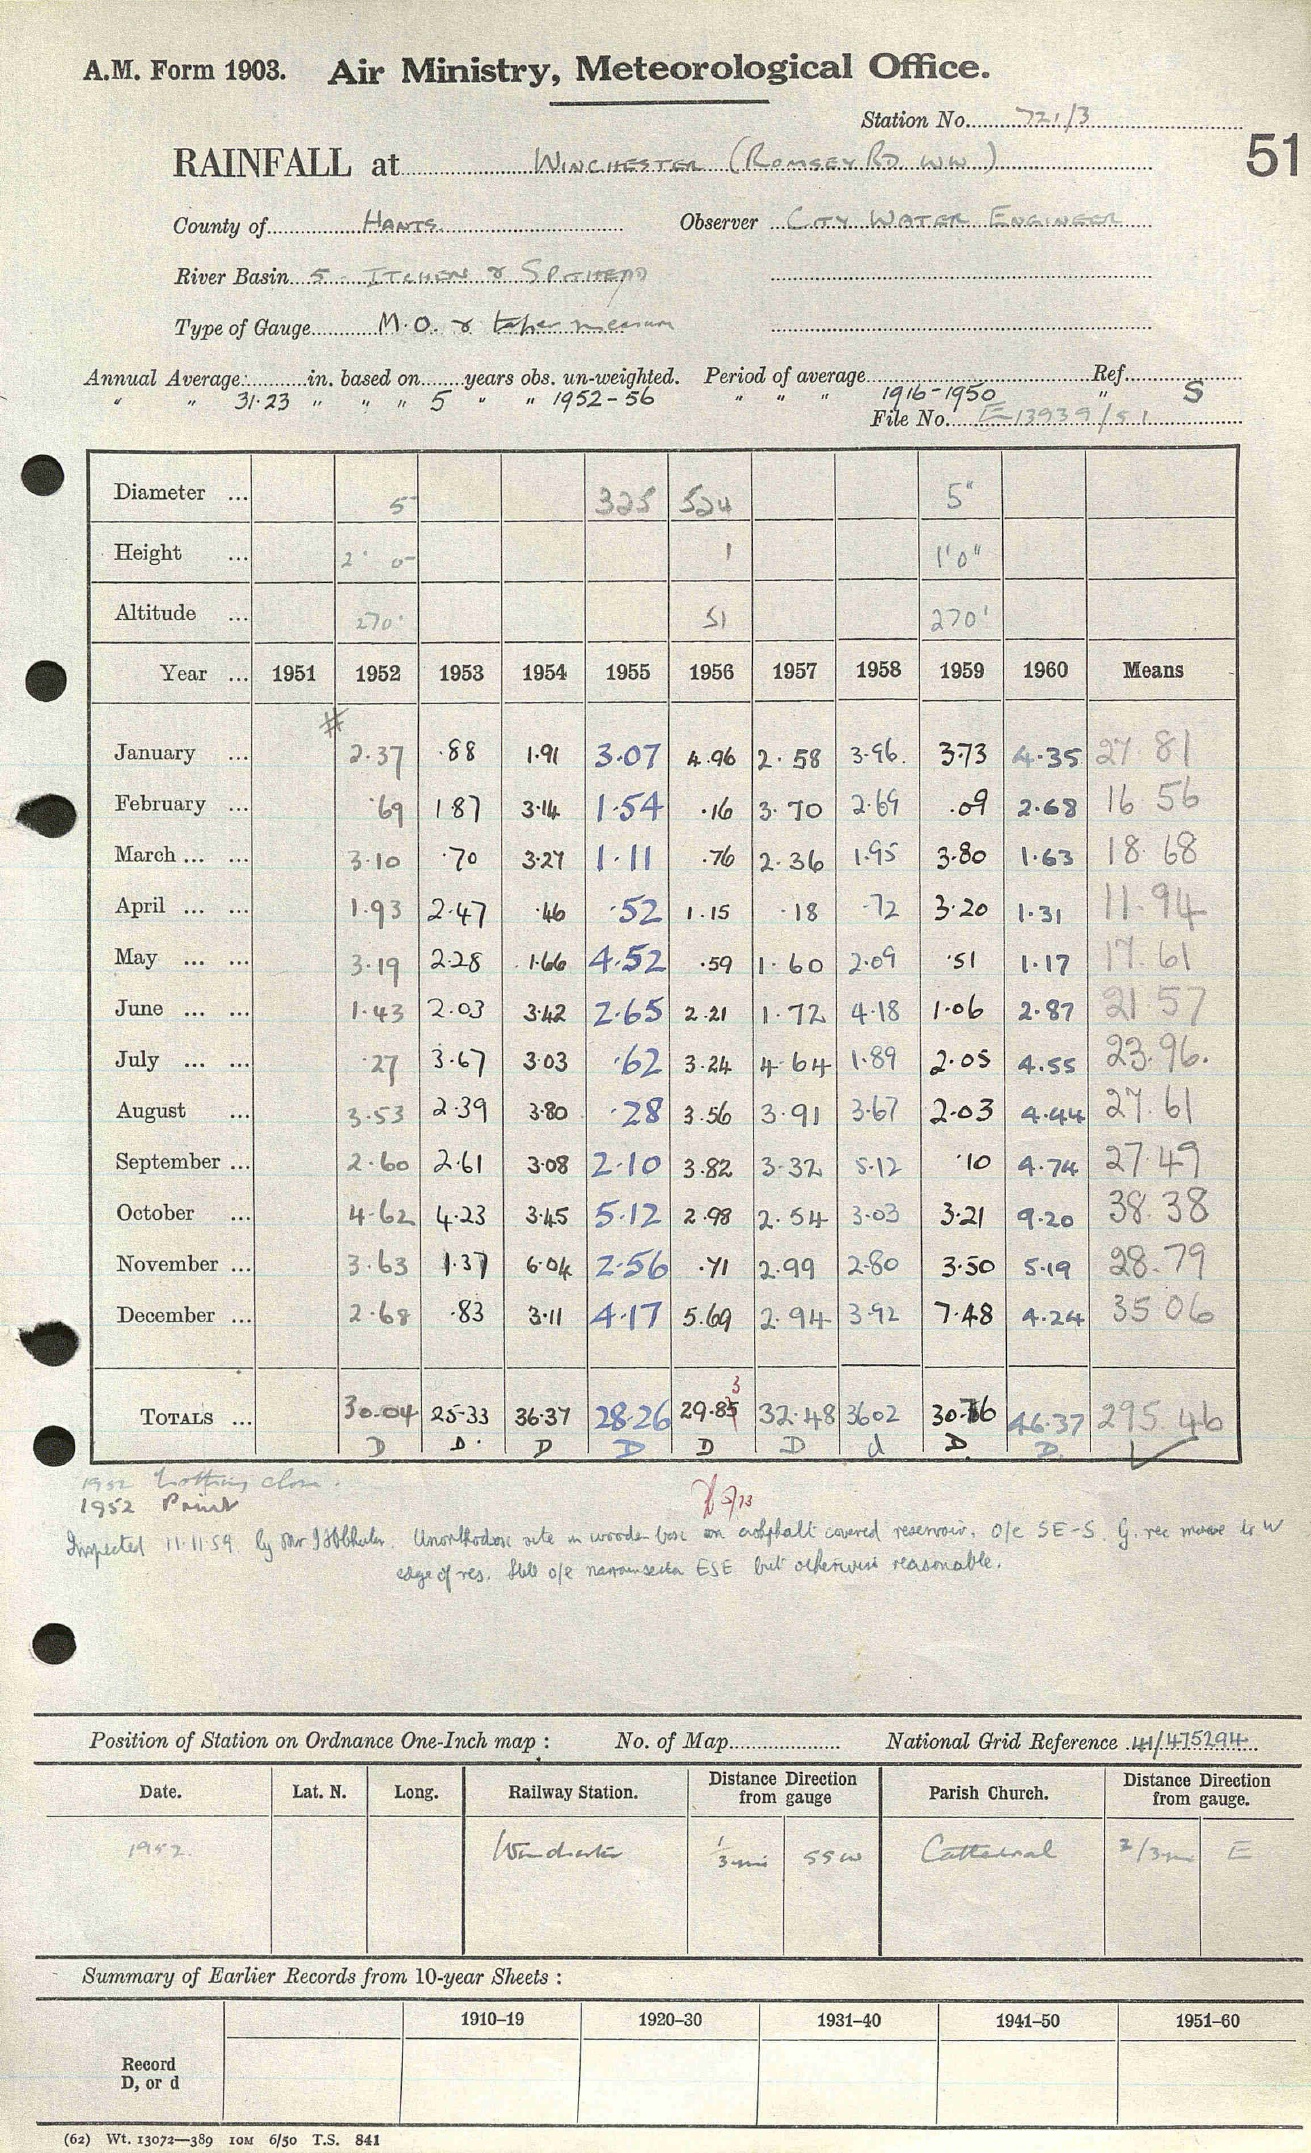 A.M. Form 1903. Air Ministry, Meteorological Office.
Station No. 721/3
51
RAINFALL at WINCHESTER (ROMSEY RD WW)
County of HANTS. Observer CITY WATER ENGINEER
River Basin 5 - ITCHEN & SPITHEAD
Type of Gauge M.O. & taper measure
Annual Average: in. based on years obs. un-weighted. Period of average Ref.
" " 31.23 " " " 5 " " 1952-56 " " " 1916-1950 " S
File No. E13939/51
Diameter ... 5 325 524 5"
Height ... 2' 0 1 1'0"
Altitude ... 270' 51 270'
Year ... 1951 1952 1953 1954 1955 1956 1957 1958 1959 1960 Means
#
January ... 2.37 .88 1.91 3.07 4.96 2.58 3.96. 3.73 4.35 27.81
February ... .69 1 87 3.14 1.54 .16 3.70 2.69 .09 2.68 16 56
March ... ... 3.10 .70 3.27 1.11 .76 2.36 1.95 3.80 1.63 18.68
April ... ... 1.93 2.47 .46 .52 1.15 .18 .72 3.20 1.31 11.94
May ... ... 3.19 2.28 1.66 4.52 .59 1.60 2.09 .51 1.17 17.61
June ... ... 1.43 2.03 3.42 2.65 2.21 1.72 4.18 1.06 2.87 21 57
July ... ... .27 3.67 3.03 .62 3.24 4 64 1.89 2.05 4.55 23.96.
August ... 3.53 2.39 3.80 .28 3.56 3.91 3.67 2.03 4.44 27.61
September ... 2.60 2.61 3.08 2.10 3.82 3.32 5.12 .10 4.74 27.49
October ... 4.62 4.23 3.45 5.12 2.98 2.54 3.03 3.21 9.20 38.38
November ... 3.63 1.37 6.04 2.56 .71 2.99 2.80 3.50 5.19 28.79
December ... 2.68 .83 3.11 4.17 5.69 2.94 3.92 7.48 4.24 35 06
3
TOTALS ... 30.04 25.33 36.37 28.26 29.85 32.48 3602 30.76 46.37 295.46
D D. D D D D d D. D.
1952 nothing close.
1952 Print
Inspected 11.11.59 by Mr Unorthodox site in wooden box on asphalt covered reservoir. o/e SE-S. G. rec move to W
edge of res. Still o/e narrow sector ESE but otherwise reasonable.
Position of Station on Ordnance One-Inch map : No. of Map National Grid Reference 41/475294
Date. Lat. N. Long. Railway Station. Distance Direction from gauge Parish Church. Distance Direction from gauge.
1952. Winchester 1/3 mi SSW Cathedral 2/3 m E
Summary of Earlier Records from 10-year Sheets :
1910–19 1920–30 1931–40 1941–50 1951–60
Record
D, or d
(62) Wt. 13072—389 10M 6/50 T.S. 841